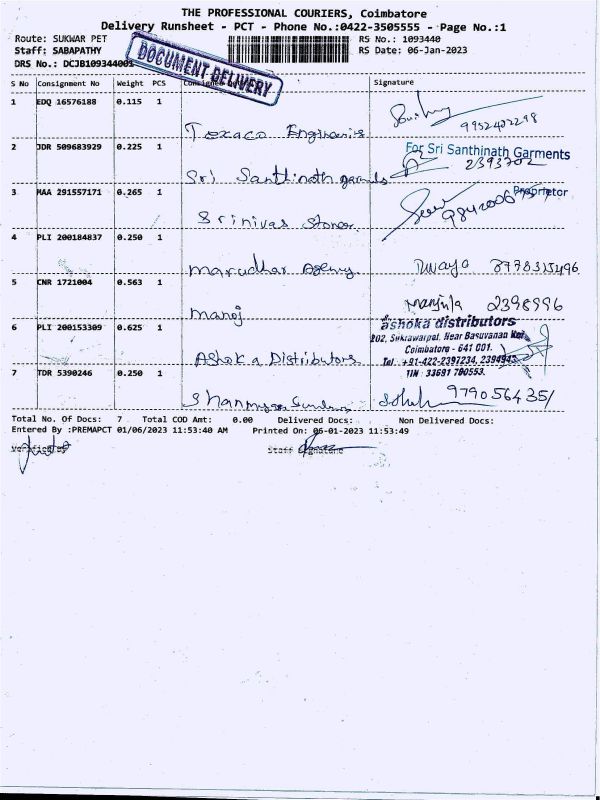 THE PROFESSIONAL COURIERS, Coimbatore
Delivery Runsheet - PCT - Phone No.:0422-3505555 - Page No.:1
Route: SUKWAR PET RS No.: 1093440
Staff: SABAPATHY RS Date: 06-Jan-2023
DRS No.: DCJB109344001
DOCUMENT DELIVERY
S No Consignment No Weight PCS Signature
1 EDQ 16576188 0.115 1
Texaco Engineering 9952402298
2 JDR 509683929 0.225 1 For Sri Santhinath Garments
Sri Santhinath garments 2393702
3 MAA 291557171 0.265 1 Proprietor
Srinivas Stones
4 PLI 200184837 0.250 1
Marudhar Agency 8778315496
5 CNR 1721004 0.563 1
Manoj Manjula 2398996
6 PLI 200153309 0.625 1 ashoka distributors
202, Sukrawarpet, Near Basuvanan Koil
Coimbatore - 641 001.
Ashoka Distributors Tel : +91-422-2397234, 2394943
TIN : 33691 780553.
7 TDR 5390246 0.250 1
9790564351
Total No. Of Docs: 7 Total COD Amt: 0.00 Delivered Docs: Non Delivered Docs:
Entered By :PREMAPCT 01/06/2023 11:53:40 AM Printed On: 06-01-2023 11:53:49
Verified By Staff Signature